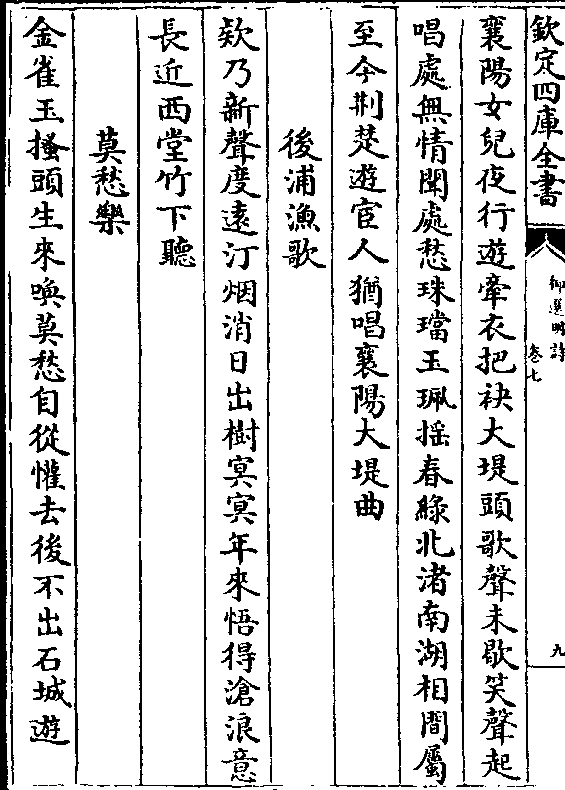 欽定四庫全書
御選明詩
卷七
九
襄陽女兒夜行遊牽衣把袂大堤頭歌聲未歇笑聲起
唱處無情聞處愁珠璫玉珮揺春緑北渚南湖相間屬
至今荆楚遊宦人猶唱襄陽大堤曲
後浦漁歌
欸乃新聲度遠汀烟消日出樹冥冥年來悟得滄浪意
長近西堂竹下聽
莫愁樂
金雀玉搔頭生來喚莫愁自從懽去後不出石城遊